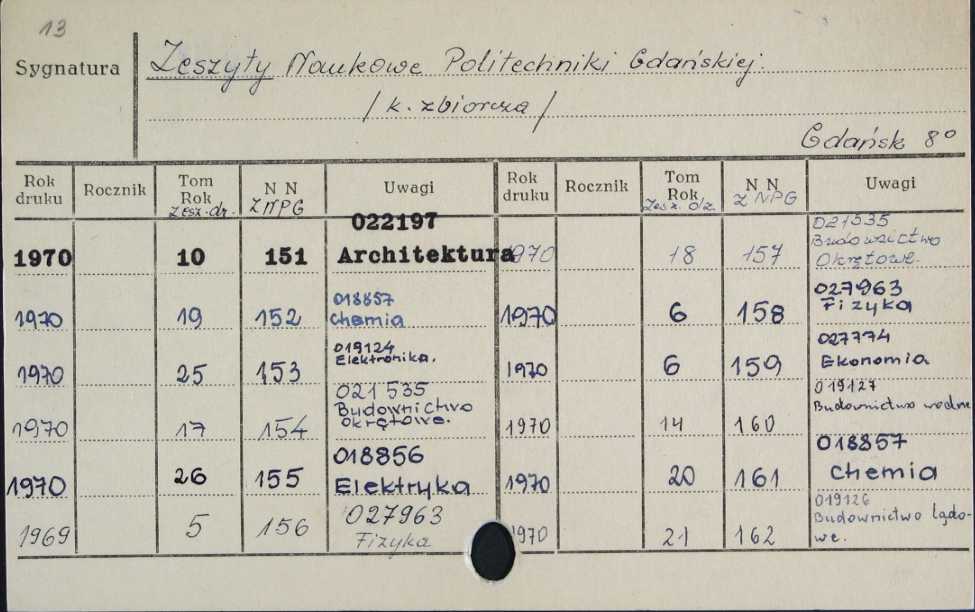 13
Sygnatura
Zeszyty Naukowe Politechniki Gdańskiej.
/k. zbiorcza/
Gdańsk 8°
Rok druku Rocznik Tom Rok Zesz. dr. N N ZNPG Uwagi
1970 10 151 022197 Architektura
1970 19 152 018857 Chemia
1970 25 153 019124 Elektronika.
1970 17 154 021535 Budownictwo Okrętowe.
1970 26 155 018856 Elektryka
1969 5 156 027963 Fizyka
Rok druku Rocznik Tom Rok Zesz. N N ZNPG Uwagi
1970 18 157 021535 Budownictwo Okrętowe.
1970 6 158 027963 Fizyka
1970 6 159 027774 Ekonomia
1970 14 160 019127 Budownictwo wodne
1970 20 161 018857 Chemia
1970 21 162 019126 Budownictwo Lądo-
we.